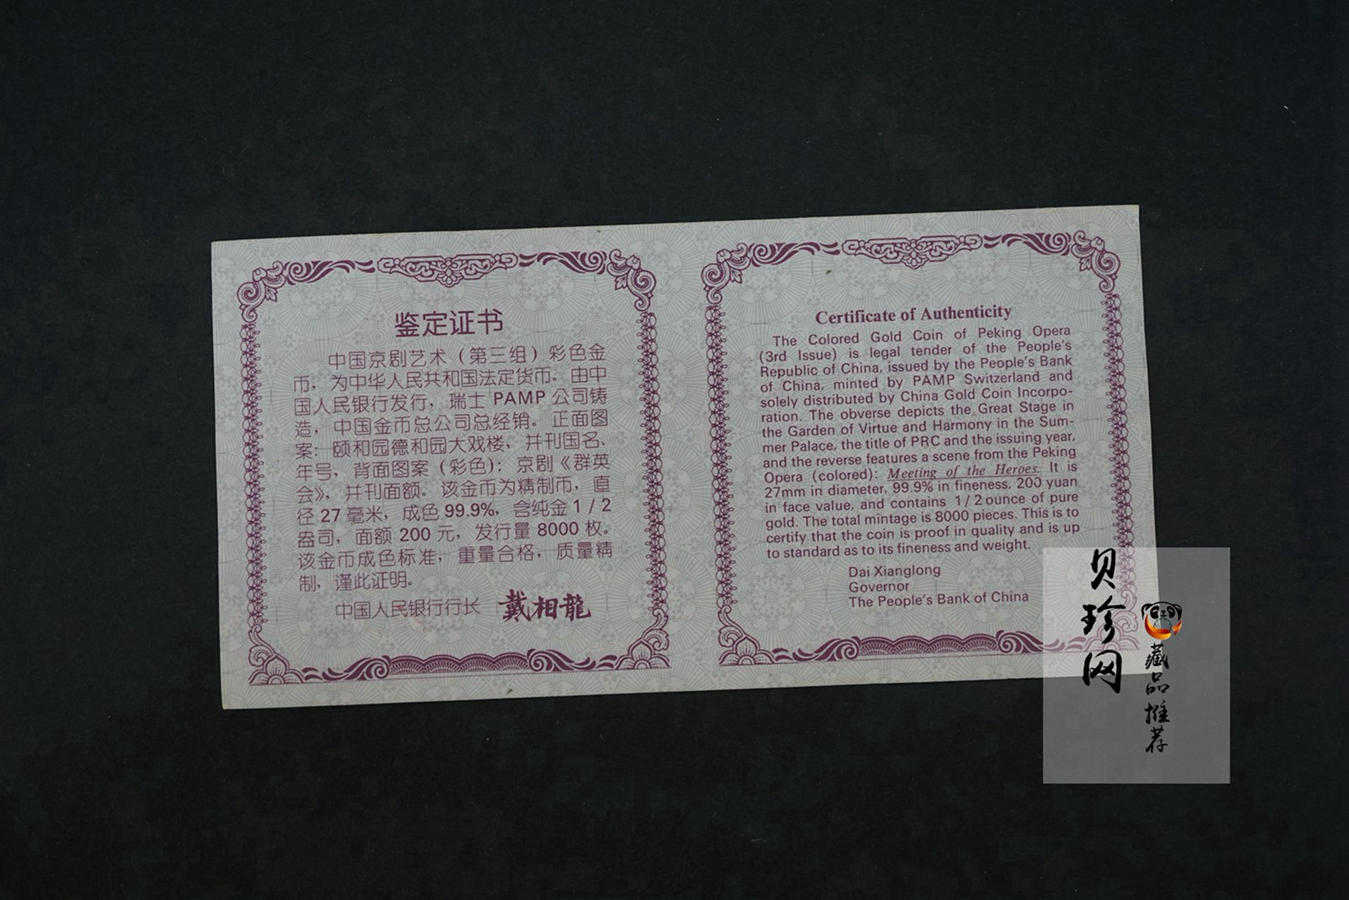 鉴定证书
中国京剧艺术（第三组）彩色金
币，为中华人民共和国法定货币。由中
国人民银行发行，瑞士 PAMP 公司铸
造，中国金币总公司总经销。正面图
案：颐和园德和园大戏楼，并刊国名、
年号，背面图案（彩色）：京剧《群英
会》，并刊面额。该金币为精制币，直
径 27 毫米，成色 99.9%，含纯金 1 / 2
盎司，面额 200 元，发行量 8000 枚。
该金币成色标准，重量合格，质量精
制，谨此证明。
中国人民银行行长 戴相龍
Certificate of Authenticity
The Colored Gold Coin of Peking Opera
(3rd Issue) is legal tender of the People's
Republic of China, issued by the People's Bank
of China, minted by PAMP Switzerland and
solely distributed by China Gold Coin Incorpo-
ration. The obverse depicts the Great Stage in
the Garden of Virtue and Harmony in the Sum-
mer Palace, the title of PRC and the issuing year,
and the reverse features a scene from the Peking
Opera (colored): Meeting of the Heroes. It is
27mm in diameter, 99.9% in fineness, 200 yuan
in face value, and contains 1 / 2 ounce of pure
gold. The total mintage is 8000 pieces. This is to
certify that the coin is proof in quality and is up
to standard as to its fineness and weight.
Dai Xianglong
Governor
The People's Bank of China
贝珍网
藏品推荐